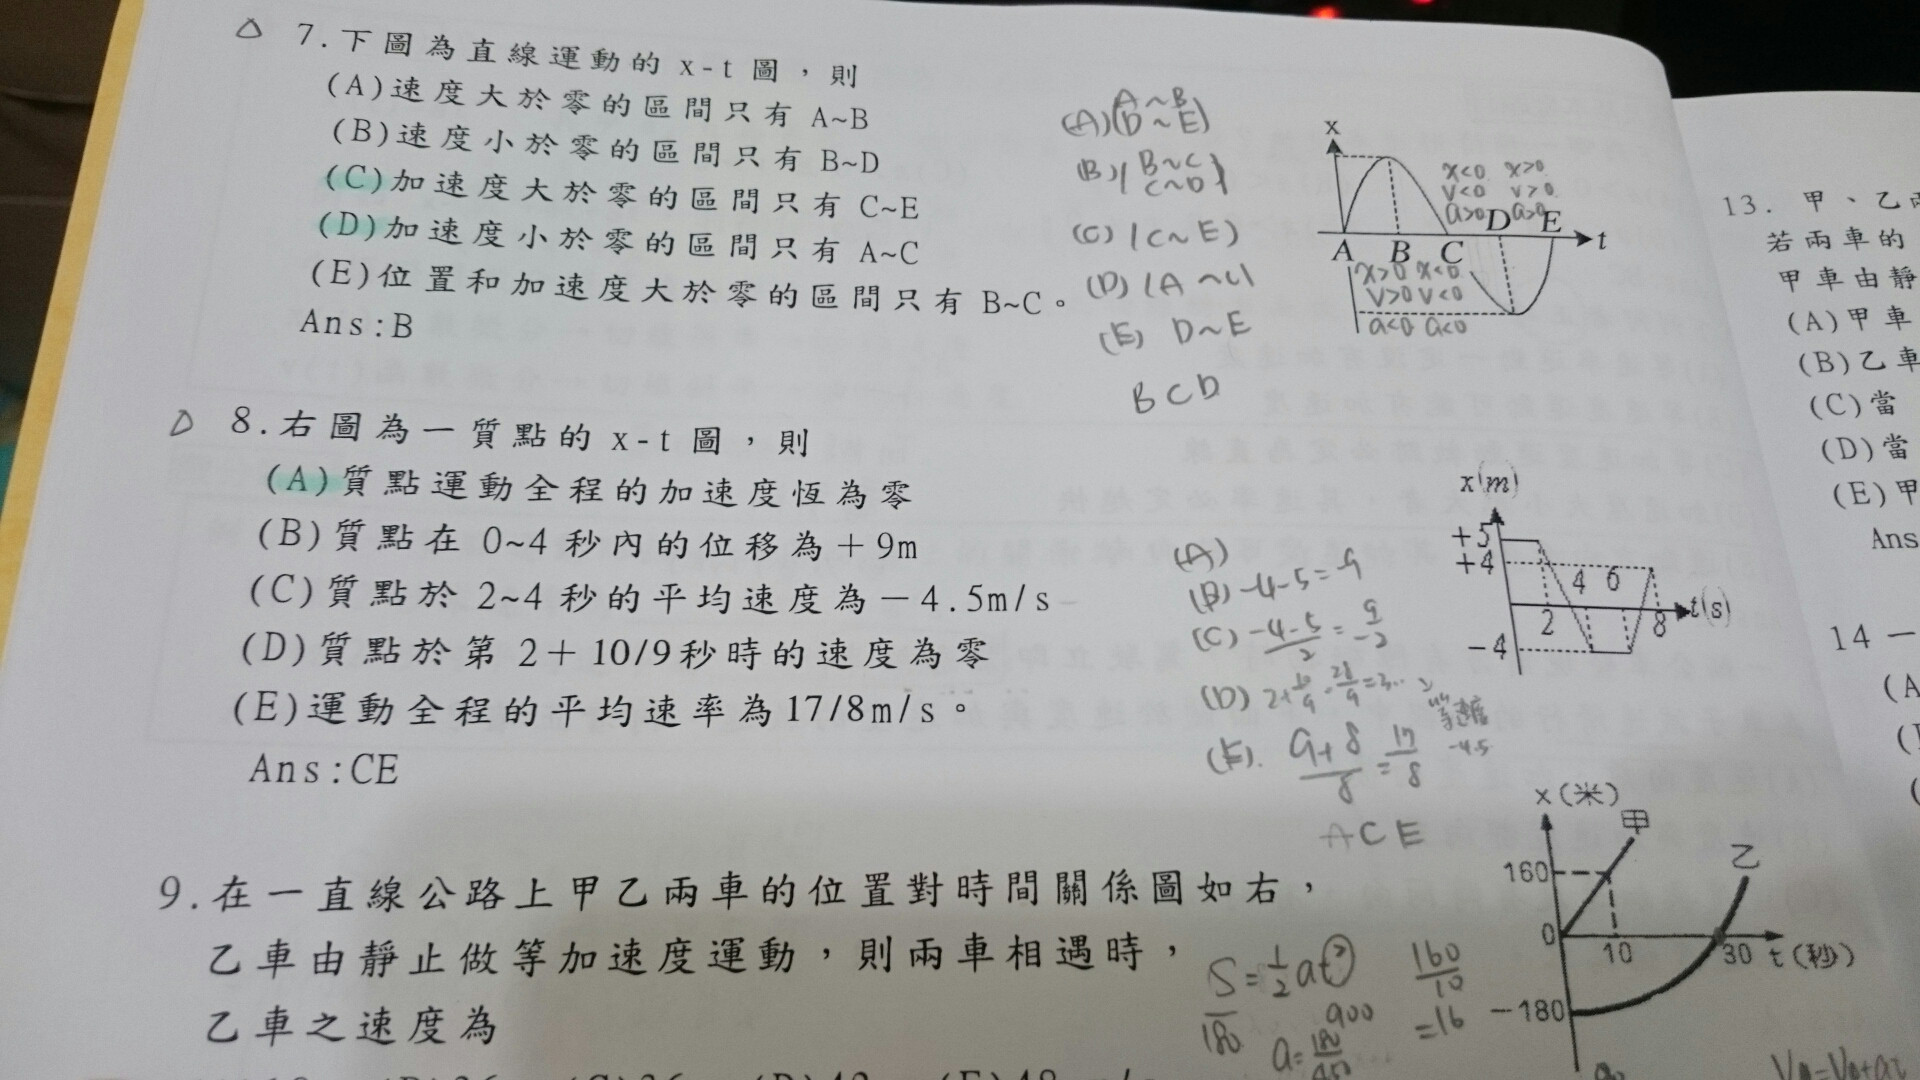 7.下圖為直線運動的 x-t 圖，則
(A)速度大於零的區間只有 A~B
(B)速度小於零的區間只有 B~D
(C)加速度大於零的區間只有 C~E
(D)加速度小於零的區間只有 A~C
(E)位置和加速度大於零的區間只有 B~C。
Ans:B
(A)(A~B
D~E)
(B)(B~C
C~D)
(C)(C~E)
(D)(A~C)
(E) D~E
BCD
x
x<0 x>0
v<0 v>0
a>0 a>0
A B C D E t
x>0 x<0
v>0 v<0
a<0 a<0
8.右圖為一質點的 x-t 圖，則
(A)質點運動全程的加速度恆為零
(B)質點在 0~4 秒內的位移為＋9m
(C)質點於 2~4 秒的平均速度為－4.5m/s
(D)質點於第 2＋10/9秒時的速度為零
(E)運動全程的平均速率為17/8m/s。
Ans:CE
(A)
(B) -4-5=-9
(C) -4-5/2=9/-2
(D) 2+10/9=28/9=3...
等速度
-4.5
(E). 9+8/8=17/8
ACE
x(m)
+5
+4
4 6
2 8 t(s)
-4
9.在一直線公路上甲乙兩車的位置對時間關係圖如右，
乙車由靜止做等加速度運動，則兩車相遇時，
乙車之速度為
S=1/2at²
180 900
a=180/450
160/10
=16
x(米)
甲
乙
160
0 10 30 t(秒)
-180
V=V0+at
13. 甲、乙兩
若兩車的
甲車由靜
(A)甲車
(B)乙車
(C)當
(D)當
(E)甲
Ans
14 一
(A